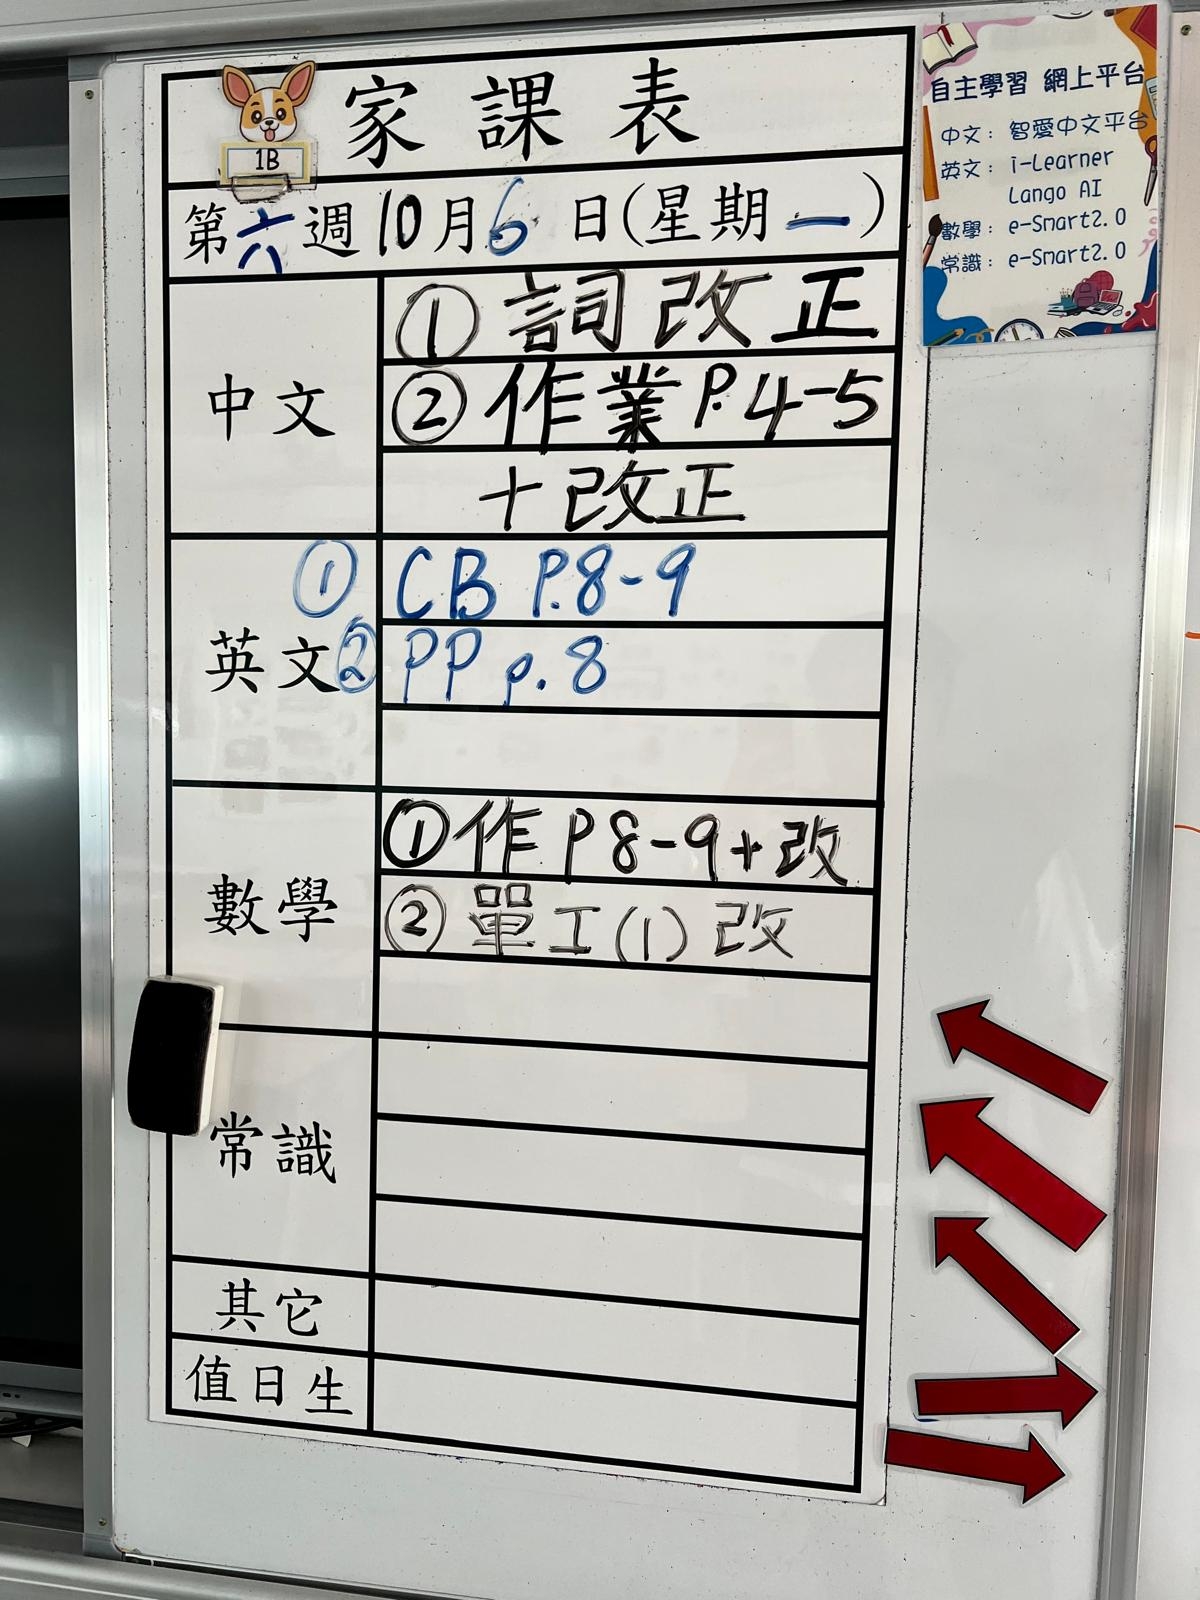 家課表
1B
第六週10月6日(星期一)
中文
① 詞改正
② 作業P.4-5
+改正
英文
① CB P.8-9
② PP p.8
數學
①作P8-9+改
②單工(1)改
常識
其它
值日生
自主學習 網上平台
中文：智愛中文平台
英文：i-Learner
Lango AI
數學：e-Smart2.0
常識：e-Smart2.0